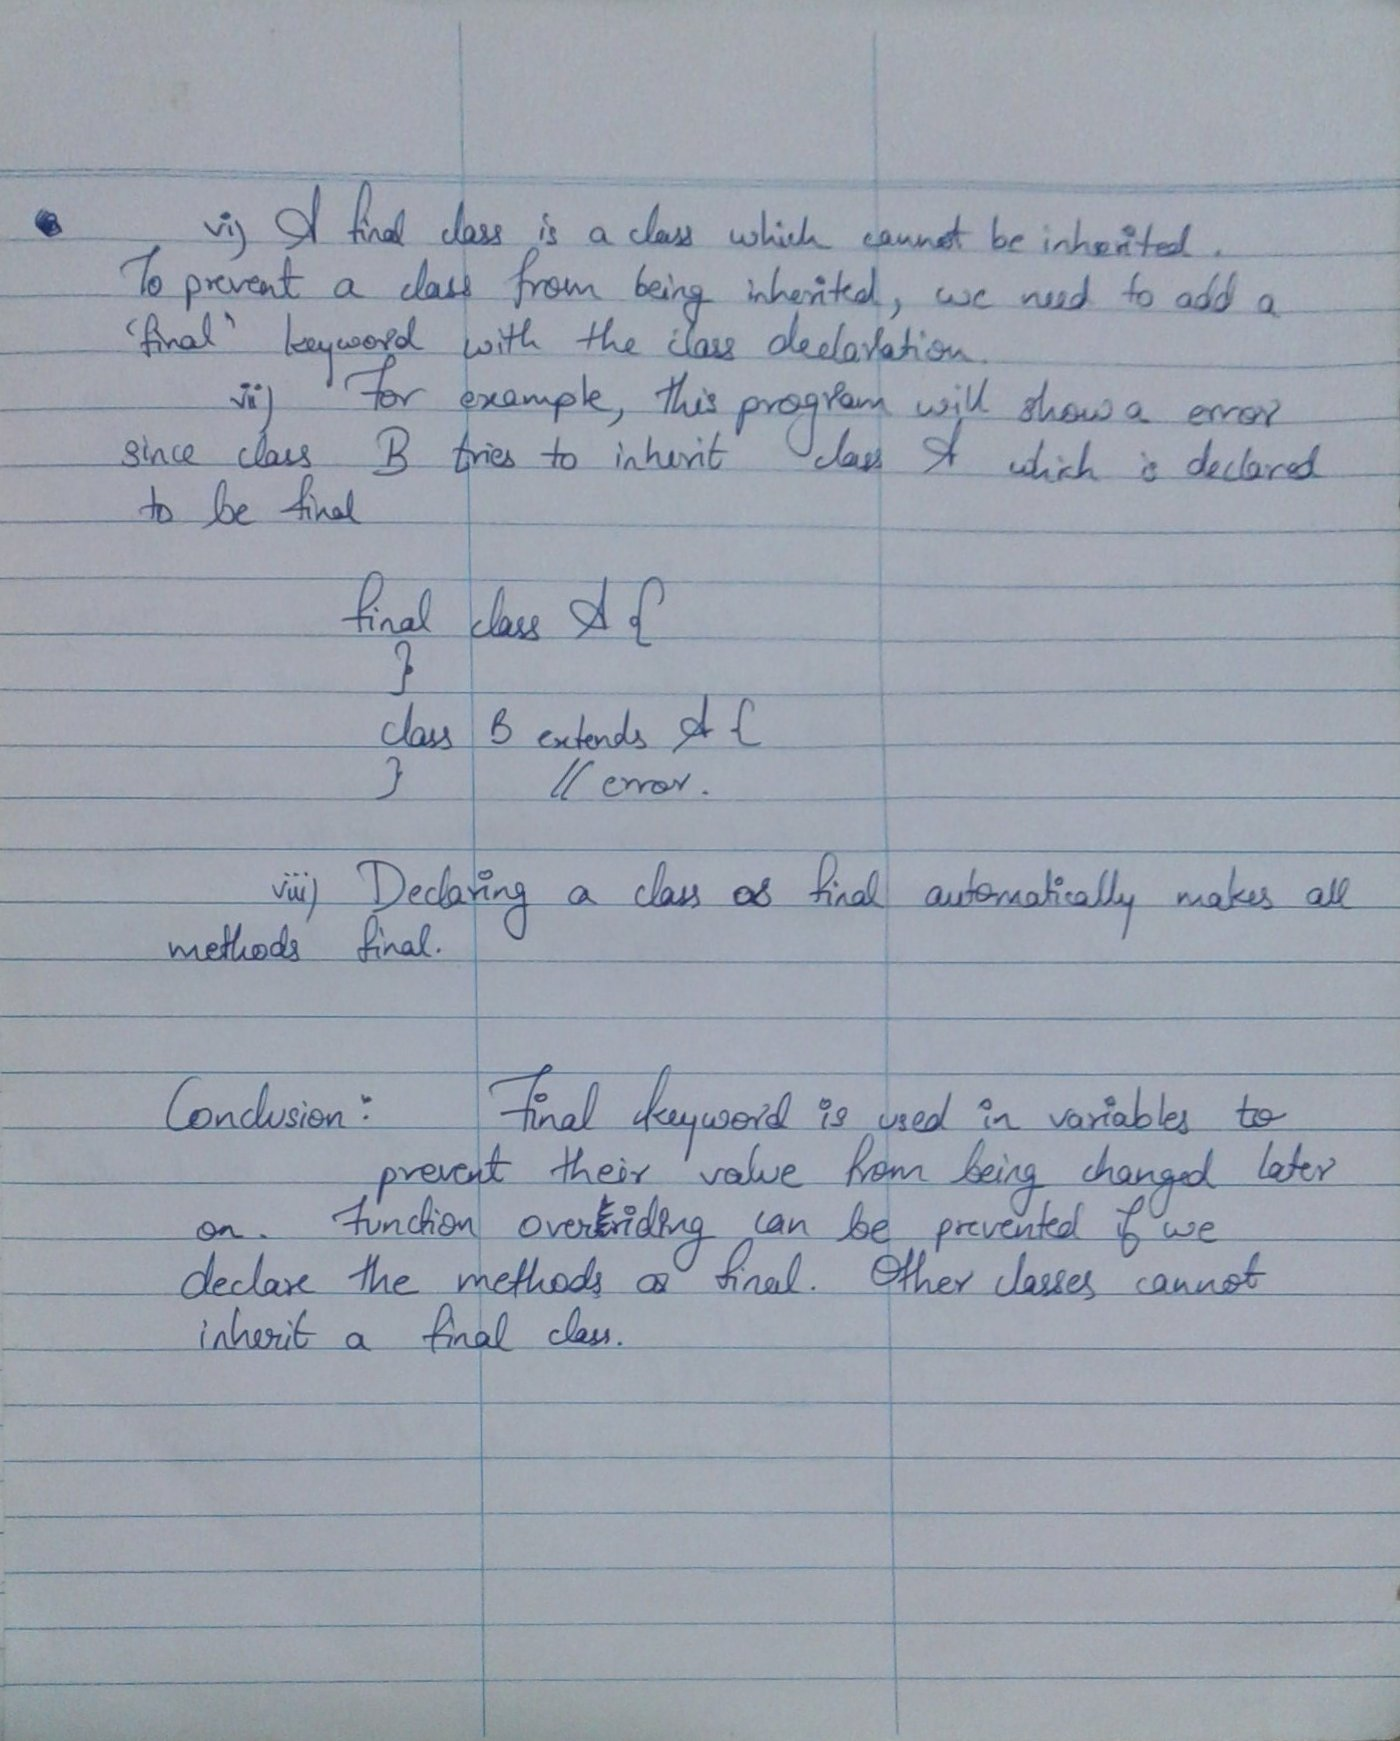 vi) A final class is a class which cannot be inherited.
To prevent a class from being inherited, we need to add a
'final' keyword with the class declaration.
vii) For example, this program will show a error
since class B tries to inherit class A which is declared
to be final
final class A {
}
class B extends A {
} // error.
viii) Declaring a class as final automatically makes all
methods final.
Conclusion: Final keyword is used in variables to
prevent their value from being changed later
on. Function overriding can be prevented if we
declare the methods as final. Other classes cannot
inherit a final class.